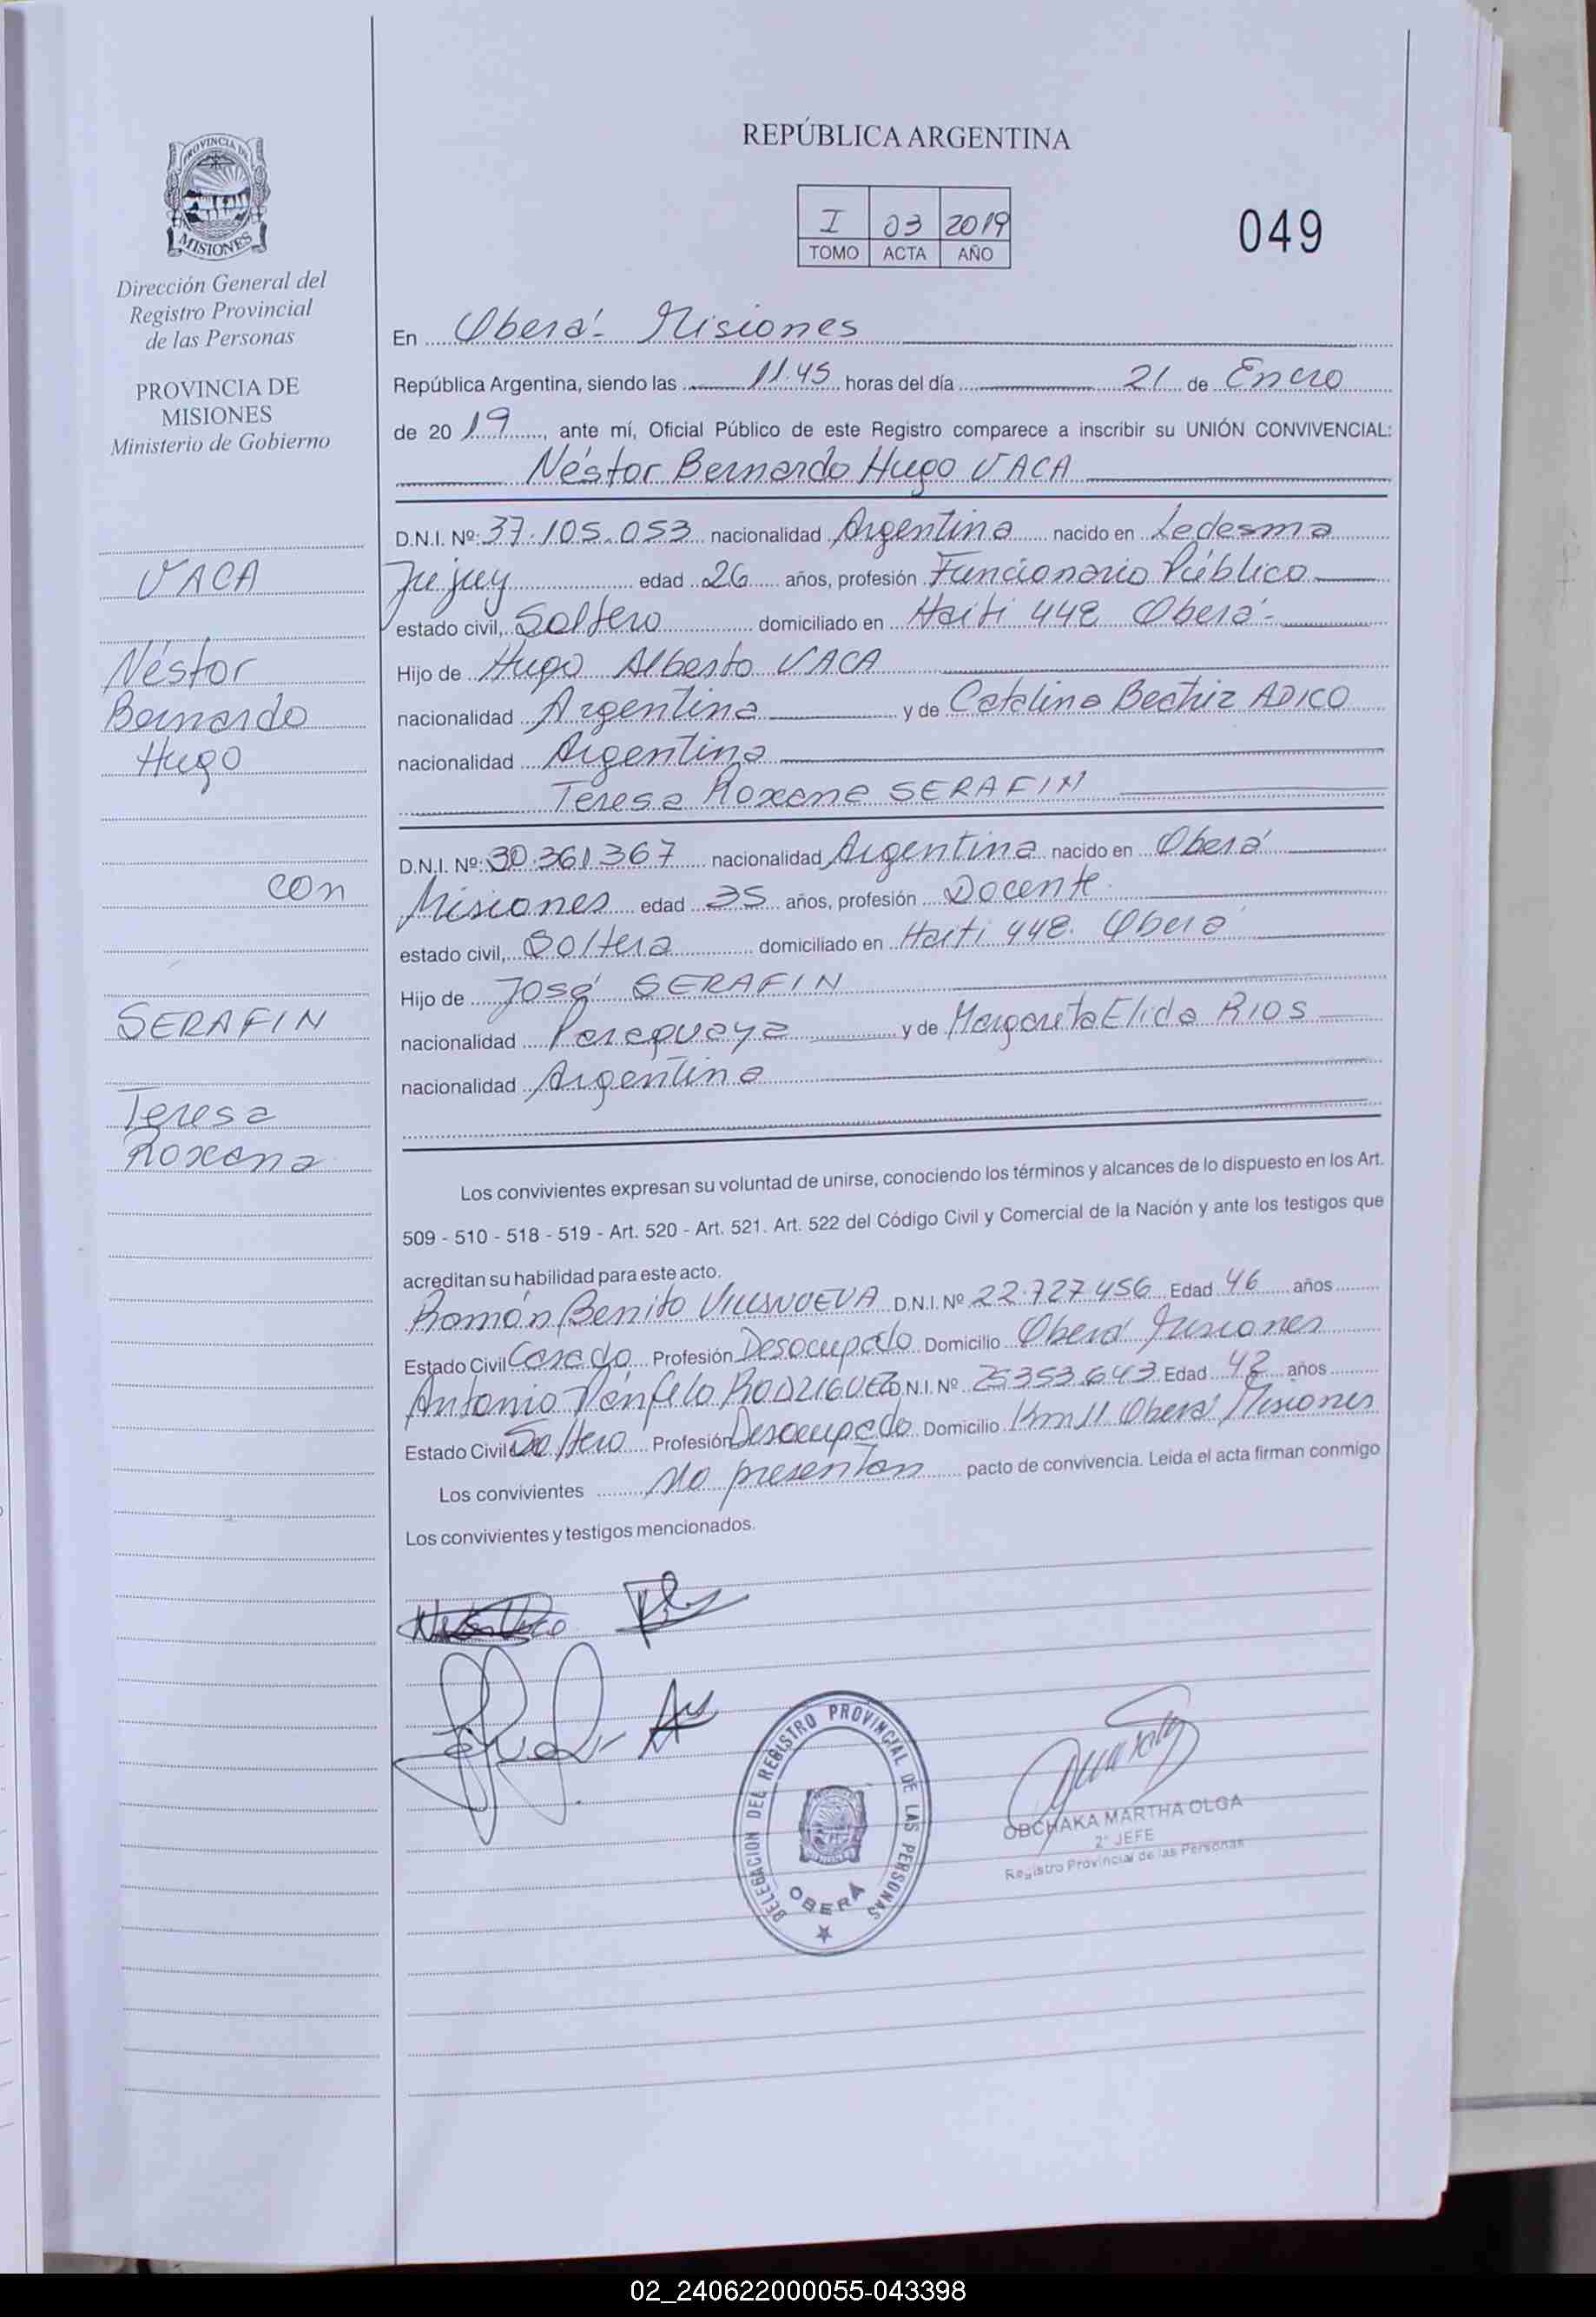 REPÚBLICA ARGENTINA
I 03 2019
TOMO ACTA AÑO
049
PROVINCIA DE
MISIONES
Dirección General del
Registro Provincial
de las Personas
PROVINCIA DE
MISIONES
Ministerio de Gobierno
VACA
Néstor
Bernardo
Hugo
con
SERAFIN
Teresa
Roxana
En Oberá - Misiones
República Argentina, siendo las 11.45 horas del día 21 de Enero
de 20 19, ante mí, Oficial Público de este Registro comparece a inscribir su UNIÓN CONVIVENCIAL:
Néstor Bernardo Hugo VACA
D.N.I. Nº: 37.105.053 nacionalidad Argentina nacido en Ledesma
Jujuy edad 26 años, profesión Funcionario Público
estado civil, Soltero domiciliado en Haiti 448 Oberá -
Hijo de Hugo Alberto VACA
nacionalidad Argentina y de Catalina Beatriz ADICO
nacionalidad Argentina
Teresa Roxana SERAFIN
D.N.I. Nº: 30.361.367 nacionalidad Argentina nacido en Oberá
Misiones edad 35 años, profesión Docente
estado civil, Soltera domiciliado en Haiti 448. Oberá
Hijo de José SERAFIN
nacionalidad Paraguaya y de Margarita Elida RIOS
nacionalidad Argentina
Los convivientes expresan su voluntad de unirse, conociendo los términos y alcances de lo dispuesto en los Art.
509 - 510 - 518 - 519 - Art. 520 - Art. 521. Art. 522 del Código Civil y Comercial de la Nación y ante los testigos que
acreditan su habilidad para este acto.
Román Benito VILLANUEVA D.N.I. Nº 22.727.456 Edad 46 años
Estado Civil Casado Profesión Desocupado Domicilio Oberá Misiones
Antonio RODRIGUEZ D.N.I. Nº 25353.643 Edad 42 años
Estado Civil Soltero Profesión Desocupado Domicilio Km 11 Oberá Misiones
Los convivientes No presentan pacto de convivencia. Leida el acta firman conmigo
Los convivientes y testigos mencionados.
DELEGACION DEL REGISTRO PROVINCIAL DE LAS PERSONAS
OBERÁ
OBCHAKA MARTHA OLGA
2° JEFE
Registro Provincial de las Personas
02_240622000055-043398